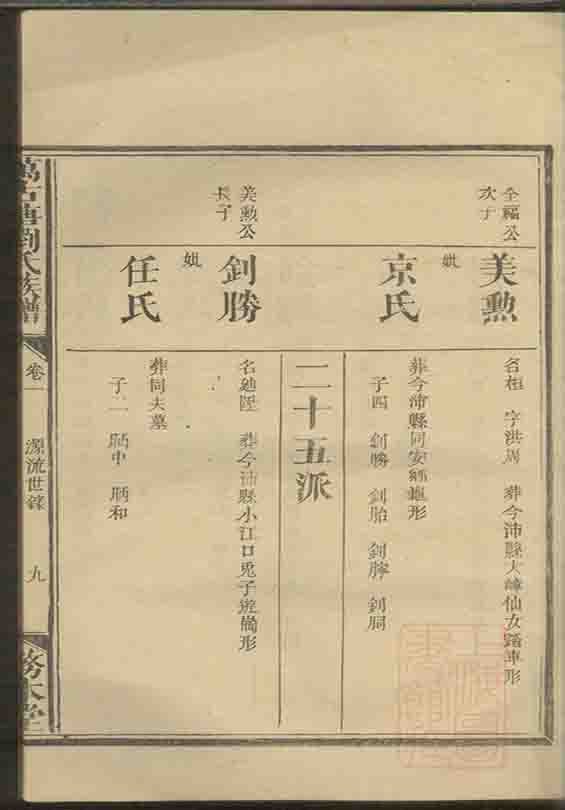 全福公
次子
美勳
名桓 字洪周 葬今沛縣大峰仙女踏車形
妣
京氏
葬今沛縣同安
子四 釗勝 釗胎 釗膟 釗胴
二十五派
美勳公
長子
釗勝
葬今沛縣小江口兎子遊崗形
妣
任氏
葬同夫墓
子一 中 和
萬古塘劉氏族譜
卷一
源流世錄
九
務本堂